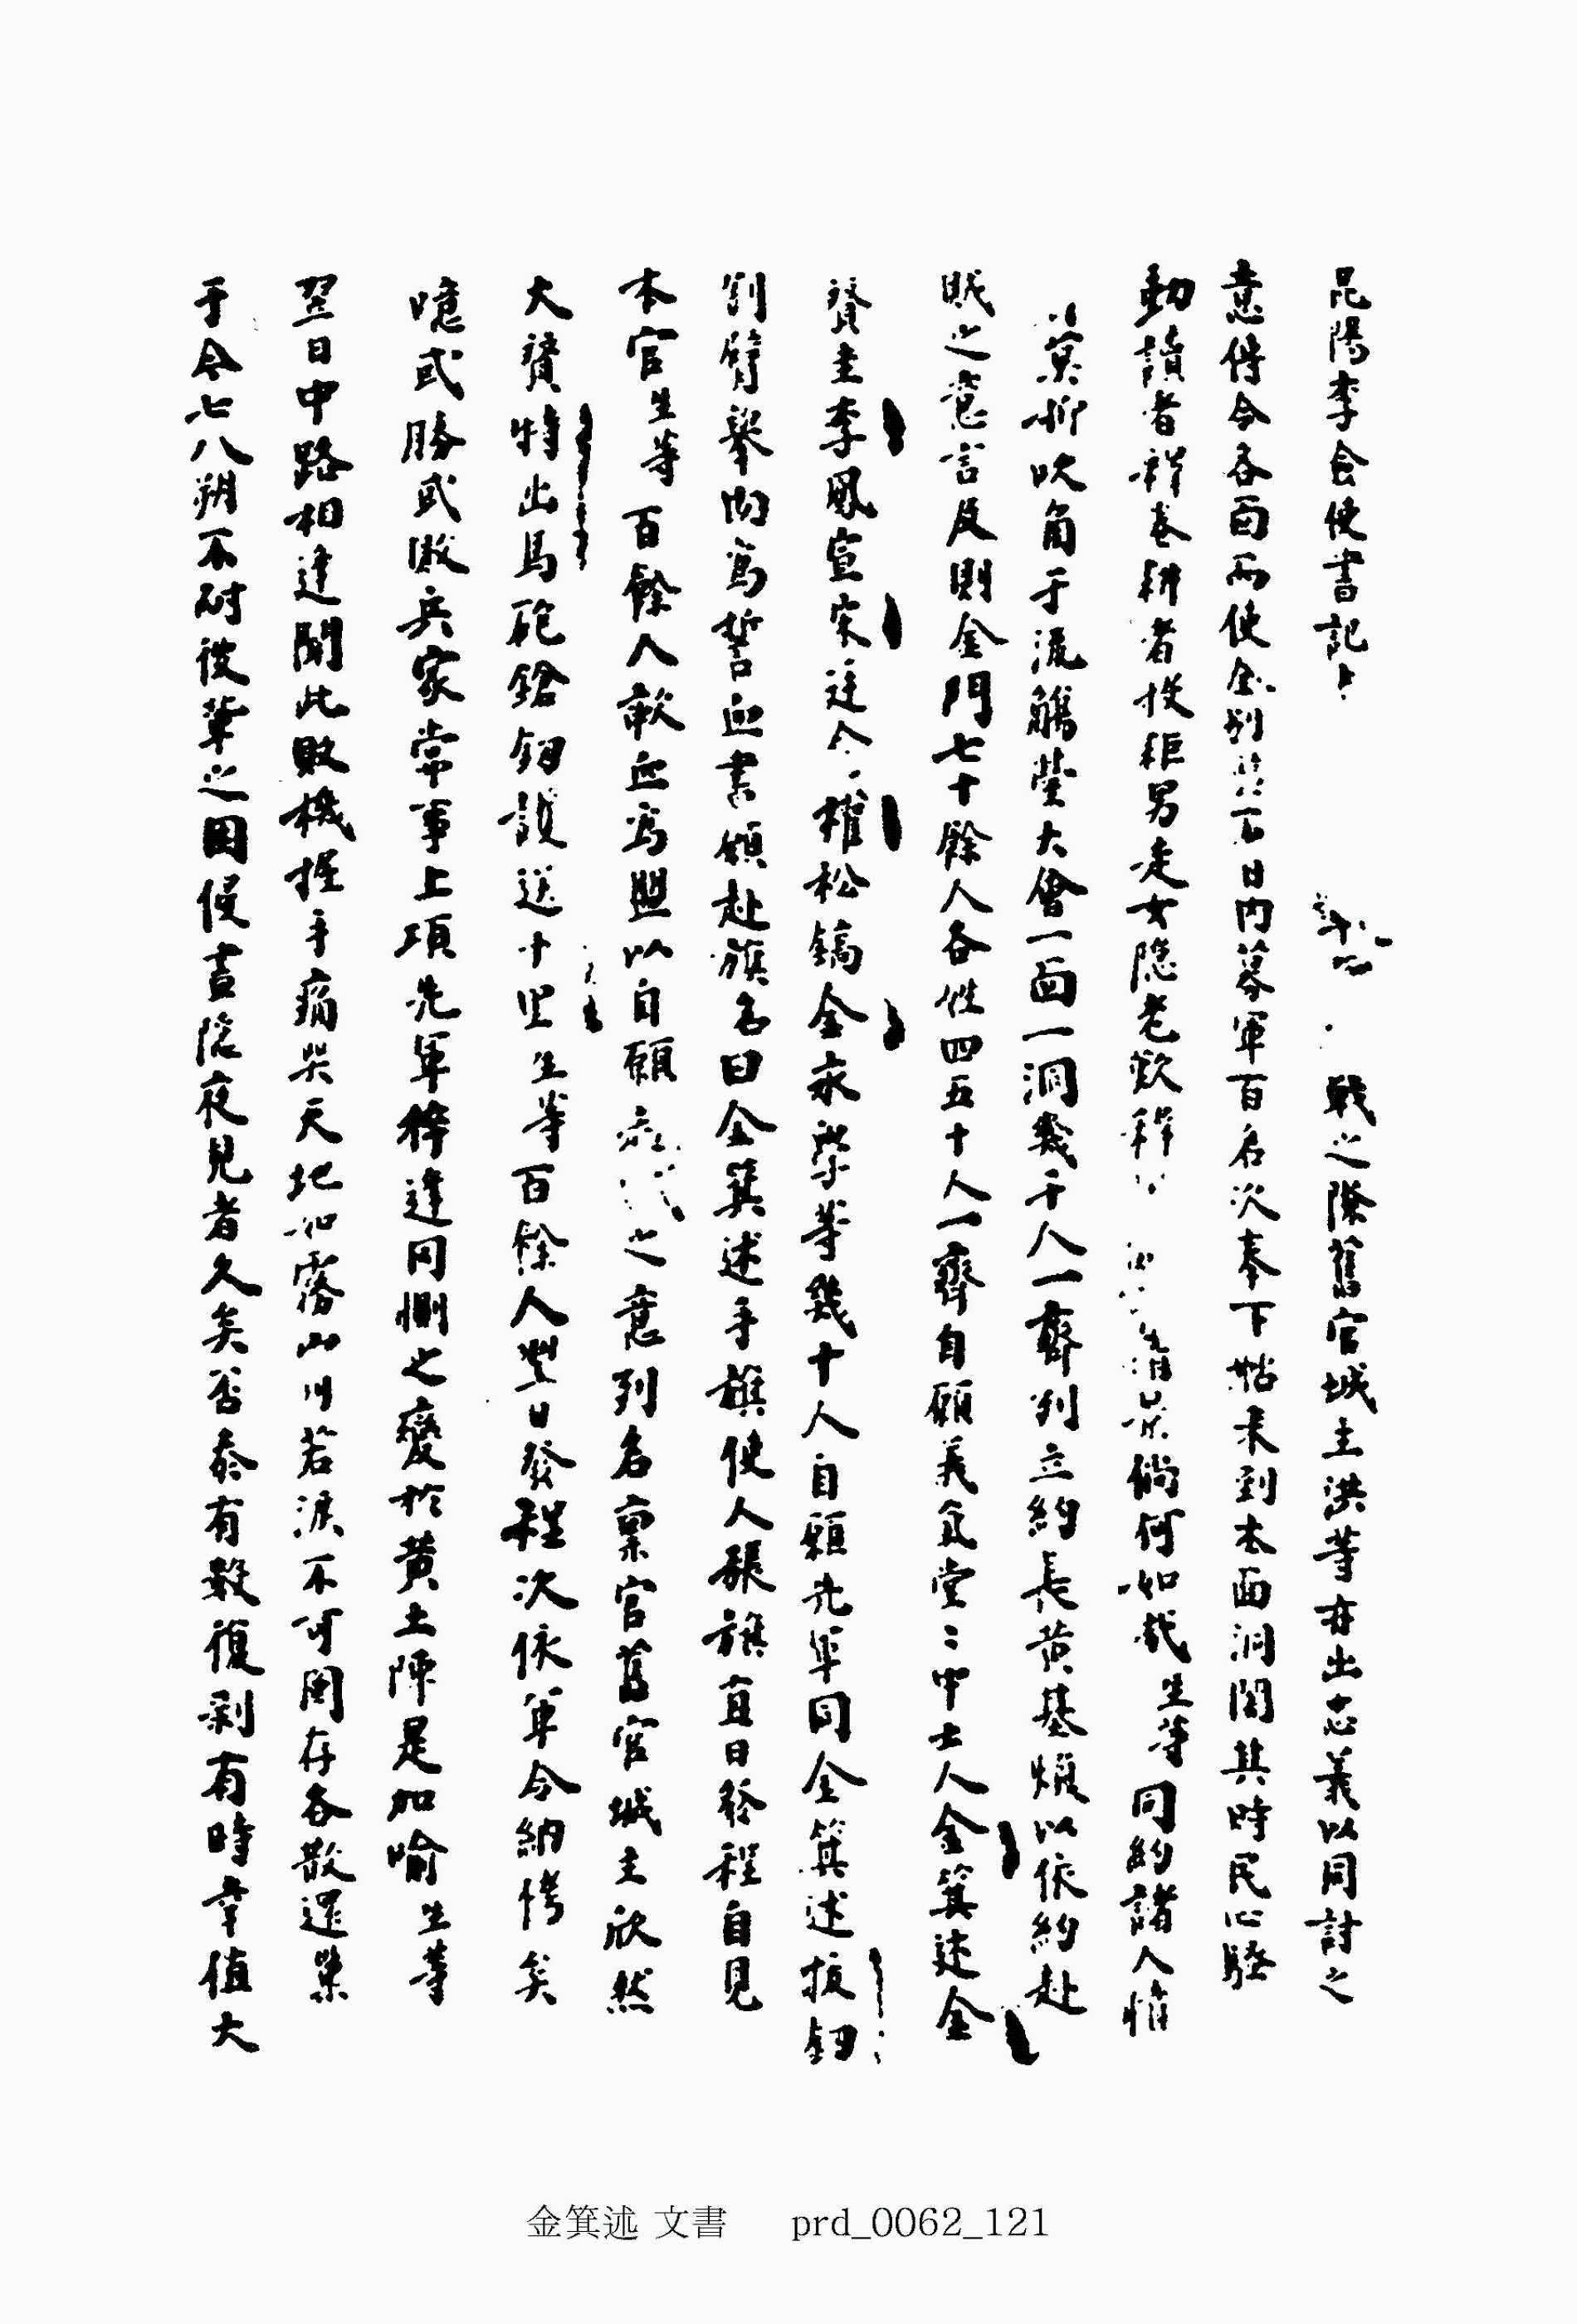 昆陽李會使書記 戰之際舊官城主洪等亦出忠義以同討之
意傳令各面而使金別 百日內募軍百名次奉下帖来到本面洞閭其時民心騷
動讀者釋卷耕者投耟男走女隐老歎稚 惝何如哉生等同約諸人惟
吹角于流觴臺大會一面一洞幾千人一齊列立約長黄基煥以依約赴
戰之意言及則金門七十餘人各姓四五十人一齊自願義氣堂〻中士人金箕述金
賛圭李鳳宣宋廷 權松鎬金永學等幾十人自願先軍同金箕述拔釰
割臂舉肉為誓血書願赴旗名曰金箕述手旗使人張旗直日發程自見
本官生等百餘人歃血為盟以自願 之意列名禀官舊官城主欣然
大賛特出馬砲鎗釰護送十里生等百餘人 日發程次依軍令納侤矣
噫或勝或敗兵家常事上項先軍猝逢同惻之變於黄土陣是如喻生等
翌日中路相逢聞此敗機握手痛哭天地如霧山川若淚不可圖存各散還巢
于今七八朔不耐彼輩之困侵晝隐夜見者久矣否泰有數復剥有時幸值大
金箕述 文書 prd_0062_121